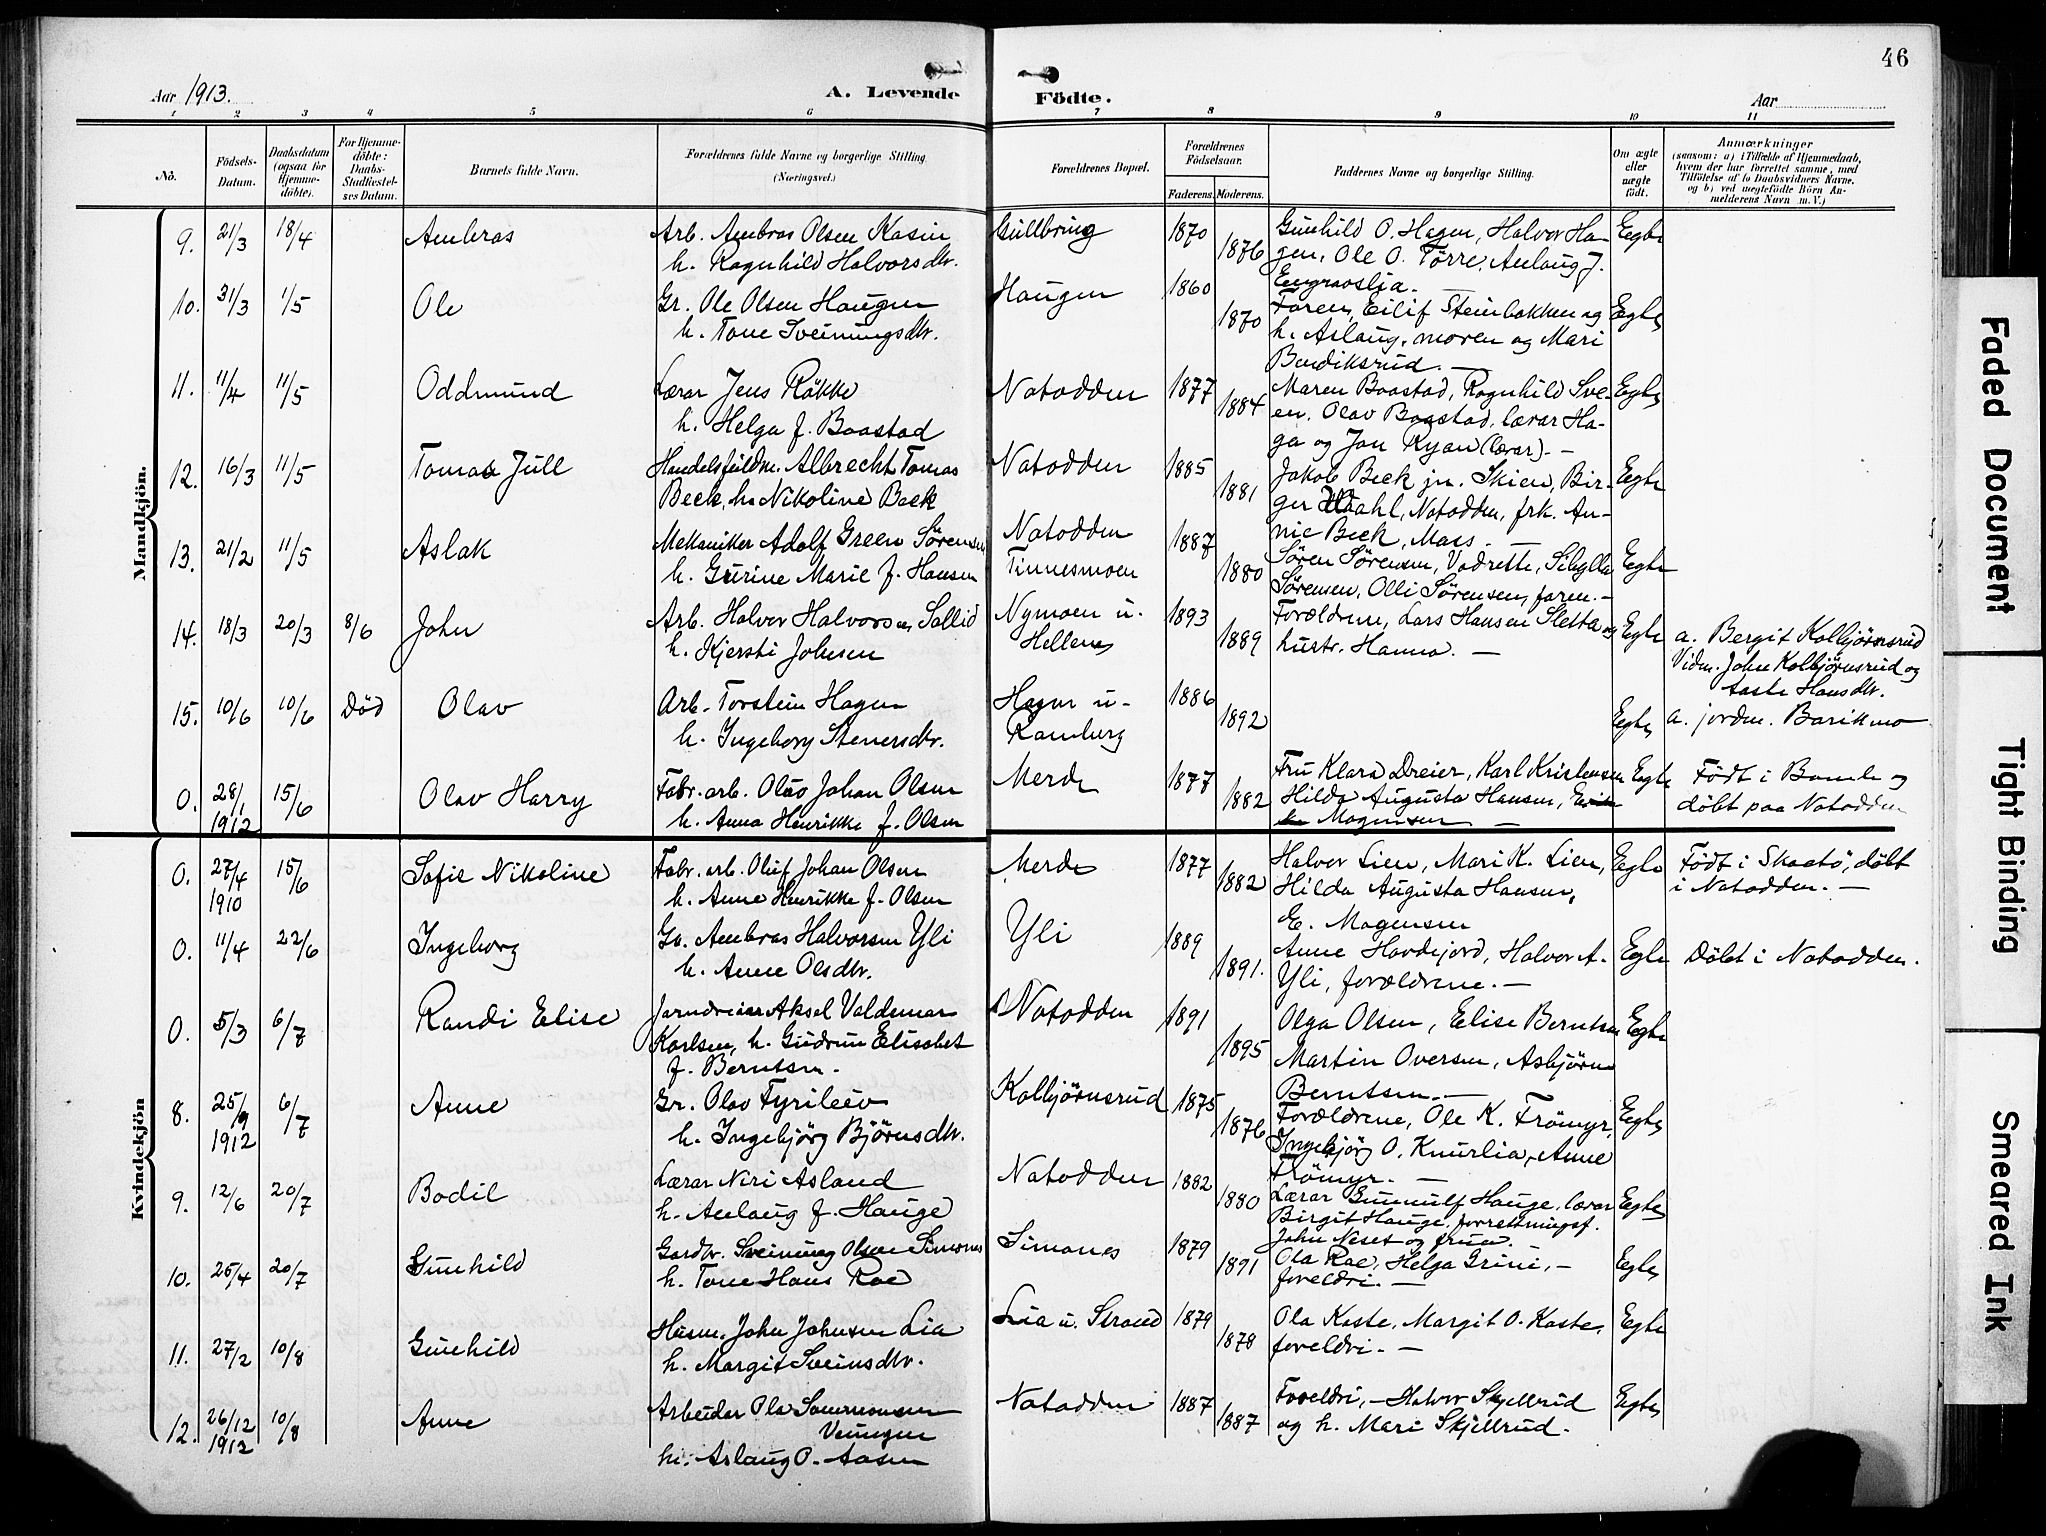 46
Aar 1913.
A. Levende
Födte.
Aar
1 2 3 4 5 6 7 8 9 10 11
No.
Födsels-
Datum.
Daabsdatum
(ogsaa for
Hjemme-
döbte).
For Hjemme-
döbte:
Daabs-
Stadfæstel-
ses Datum.
Barnets fulde Navn.
Forældrenes fulde Navne og borgerlige Stilling
(Næringsvei.)
Forældrenes Bopæl.
Forældrenes
Födselsaar.
Faderens. Moderens.
Faddernes Navne og borgerlige Stilling.
Om ægte
eller
uægte
födt.
Anmærkninger
(saasom: a) i Tilfælde af Hjemmedaab,
hvem der har forrettet samme, med
Tilföielse af to Daabsvidners Navne,
og b) ved uegtefödte Börn An-
melderens Navn m. V.)
Mandkjön.
9. 21/3 18/4 Ambros
Arb. Ambros Olsen Kasin
h. Ragnhild Halvorsdtr.
Gullbring 1870 1876
Gunhild O. Hagen, Halvor Ha-
gen, Ole O. Tørre, Anlaug J.
Engravslia. —
Egte
10. 31/3 1/5 Ole
Gr. Ole Olsen Haugen
h. Tone Sveinungsdtr.
Haugen 1860 1870
Faren, Eilif Steinbakken og
h. Aslaug, moren og Mari
Bendiksrud. —
Egte
11. 11/4 11/5 Oddmund
Lærar Jens Røkke
h. Helga f. Baastad
Notodden 1877 1884
Maren Baastad, Ragnhild Sve-
en, Olav Baastad, lærar Ha-
ga og Jon Ryan (lærar). —
Egte
12. 16/3 11/5 Tomas Jull
Handelsfuldm. Albrecht Tomas
Beck, h. Nikoline Beck
Notodden 1885 1881
Jakob Beck jn. Skien, Bir-
ger Dahl, Notodden, frk. An-
nie Beck, Mass. —
Egte
13. 21/2 11/5 Aslak
Mekaniker Adolf Green Sørensen
h. Gurine Marie f. Hansen
Notodden
Tinnesmoen
1887 1880
Søren Sørensen, Vadrette, Sibylla
Sørensen, Olli Sørensen, faren. —
Egte
14. 18/3 20/3 8/6 John
Arb. Halvor Halvorsen Sallid
h. Kjersti Johnsen
Nymoen u.
Hellenes
1893 1889
Forældrene, Lars Hansen Sletta og
hustr. Hanna. —
Egte
a. Bergit Kolbjørnsrud
Vidn. John Kolbjørnsrud og
Aaste Hansdtr.
15. 10/6 10/6 Død Olav
Arb. Torstein Hagen
h. Ingeborg Stenersdtr.
Hagen u.
Ramberg
1886 1892
Egte
a. jordm. Barikmo
0. 28/1 1912 15/6 Olav Harry
Fabr. arb. Oluf Johan Olsen
h. Anna Henrikke f. Olsen
Merde 1877 1882
Fru Klara Dreier, Karl Kristensen
Hilda Augusta Hansen,
Mogensen —
Egte
Født i Bamle og
døbt paa Notodden
Kvindekjön
0. 27/4 1910 15/6 Sofie Nikoline
Fabr. arb. Oluf Johan Olsen
h. Anne Henrikke f. Olsen
Merde 1877 1882
Halvor Lien, Mari K. Lien,
Hilda Augusta Hansen,
E. Mogensen
Egte
Født i Skaatö, døbt
i Notodden. —
0. 11/4 22/6 Ingeborg
Ga. Ambros Halvorsen Yli
h. Anne Olsdtr.
Yli 1889 1891.
Anne Hovdejord, Halvor A.
Yli, forældrene. —
Egte
Døbt i Notodden.
0. 5/3 6/7 Randi Elise
Jarndreiar Aksel Valdemar
Karlsen, h. Gudrun Elisabet
f. Berntsen.
Notodden 1891 1895
Olga Olsen, Elise Berntsen
Martin Oversen, Asbjørn
Berntsen. —
Egte
8. 25/9 1912 6/7 Anne
Gr. Olav Tyrileiv
h. Ingebjørg Bjørnsdtr.
Kolbjørnsrud 1875 1876
Forældrene, Ole K. Frömyr,
Ingebjörg O. Knurlia, Anne
Frömyr. —
Egte
9. 12/6 20/7 Bodil
Lærar Niri Asland
h. Anlaug f. Hauge
Notodden 1882 1880
Lærar Gunnulf Hauge, lærar
Birgit Hauge, forrettningsf.
John Neset og fruen.
Egte
10. 25/4 20/7 Gunhild
Gardbr. Sveinung Olsen Simones
h. Tone Hans Roe
Simones 1879 1891
Ola Roe, Helga Grini, —
foreldri. —
Egte
11. 27/2 10/8 Gunhild
Husm. John Johnsen Lia
h. Margit Sveinsdtr.
Lia u. Strand 1879 1878
Ola Kaste, Margit O. Kaste,
foreldri. —
Egte
12. 26/12 1912 10/8 Anne
Arbeidar Ola Sammonsen
Venungen
h. Aslaug O. Aasen
Notodden 1887 1887
Foreldri, — Halvor Skjellrud
og h. Mari Skjellrud.
Egte
Faded Document
Tight Binding
Smeared Ink